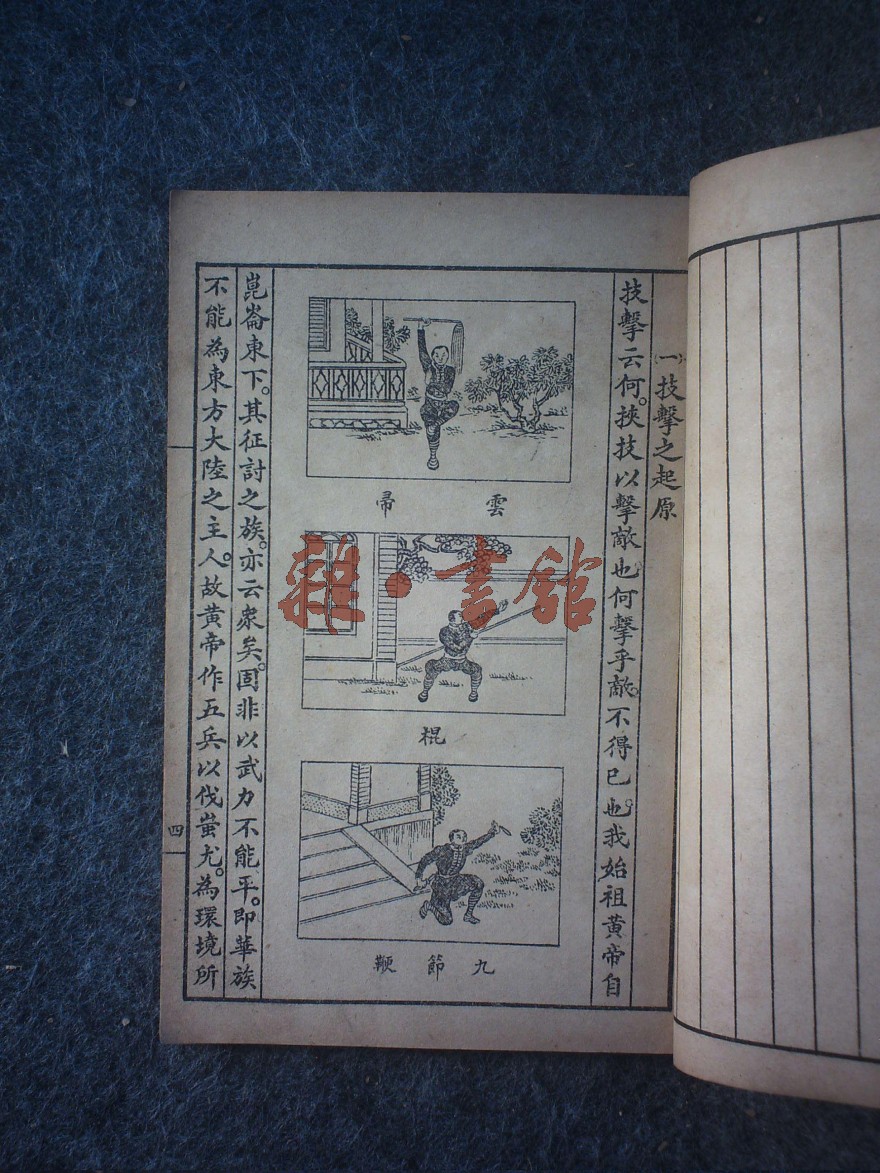 (一)技擊之起原
技擊云何。挾技以擊敵也何擊乎敵。不得已也。我始祖黃帝自
雲帚
棍
九節鞭
崑崙東下。其征討之族。亦云衆矣。固非以武力不能平。即華族
不能為東方大陸之主人。故黃帝作五兵以伐蚩尤。為環境所
四
雜·書館